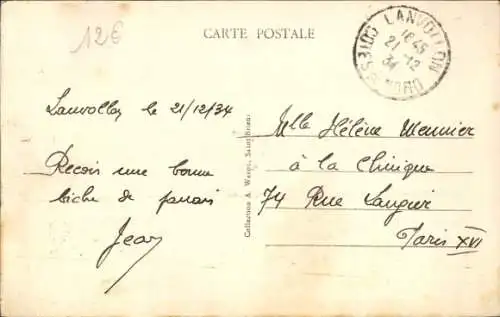 12€
CARTE POSTALE
LANVOLLON
COTES DU NORD
18 45
21 12
34
Lanvollon le 21/12/34
Reçois une bonne
biche de
Jean
Collection A. Waron, Saint-Brieuc
Mlle Hélène Meunier
à la Clinique
74 Rue Laugier
Paris XVI